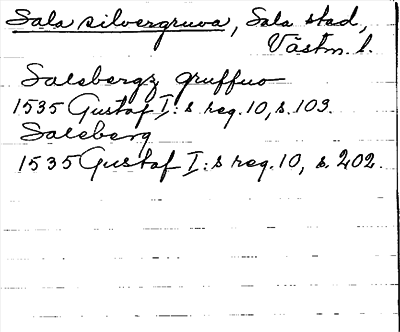 Sala silvergruva, Sala stad,
Västm. l.
Salsbergz gruffuo
1535 Gustaf I:s reg. 10, s. 103.
Salsberg
1535 Gustaf I:s reg. 10, s. 202.